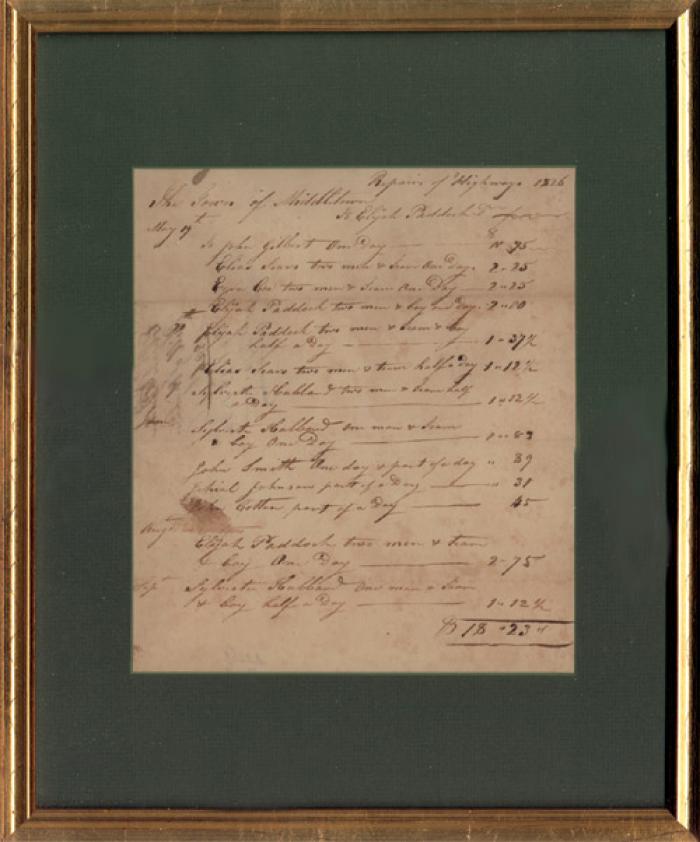 Repairs of Highways 1826
The Town of Middletown
To Elijah Paddock Dr
May 19th
To John Gilbert One Day 75
Elias Sears two men & Team One day 2-25
Ezra Coe two men & Team One Day 2-25
Elijah Paddock two men & boy one day 2-00
Elijah Paddock two men & Team & boy
half a day 1-37½
Elias Sears two men & team half a day 1-12½
Sylvester Hubbard two men & Team half
a Day 1-12½
June
Sylvester Hubbard one man & Team
& boy One Day
John Smith One day & part of a day " 39
Johnson part of a Day " 31
Cotton part of a day 45
Augt
Elijah Paddock two men & team
& boy One Day 2-75
Sept Sylvester Hubbard One man & Team
& boy half a Day 1-12½
$18-23"